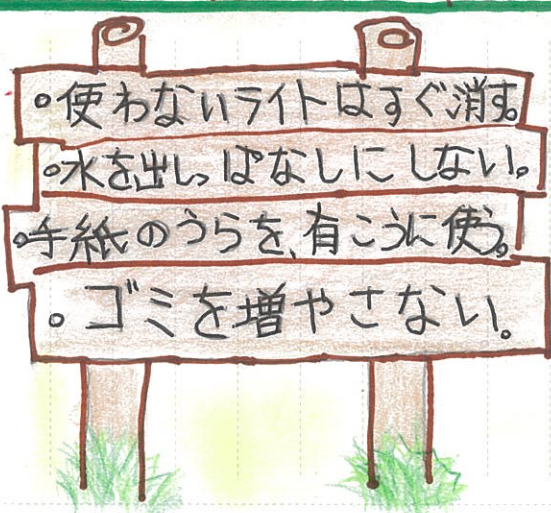 ・使わないライトはすぐ消す。
・水を出しっぱなしにしない。
・手紙のうらを、有こうに使う。
・ゴミを増やさない。